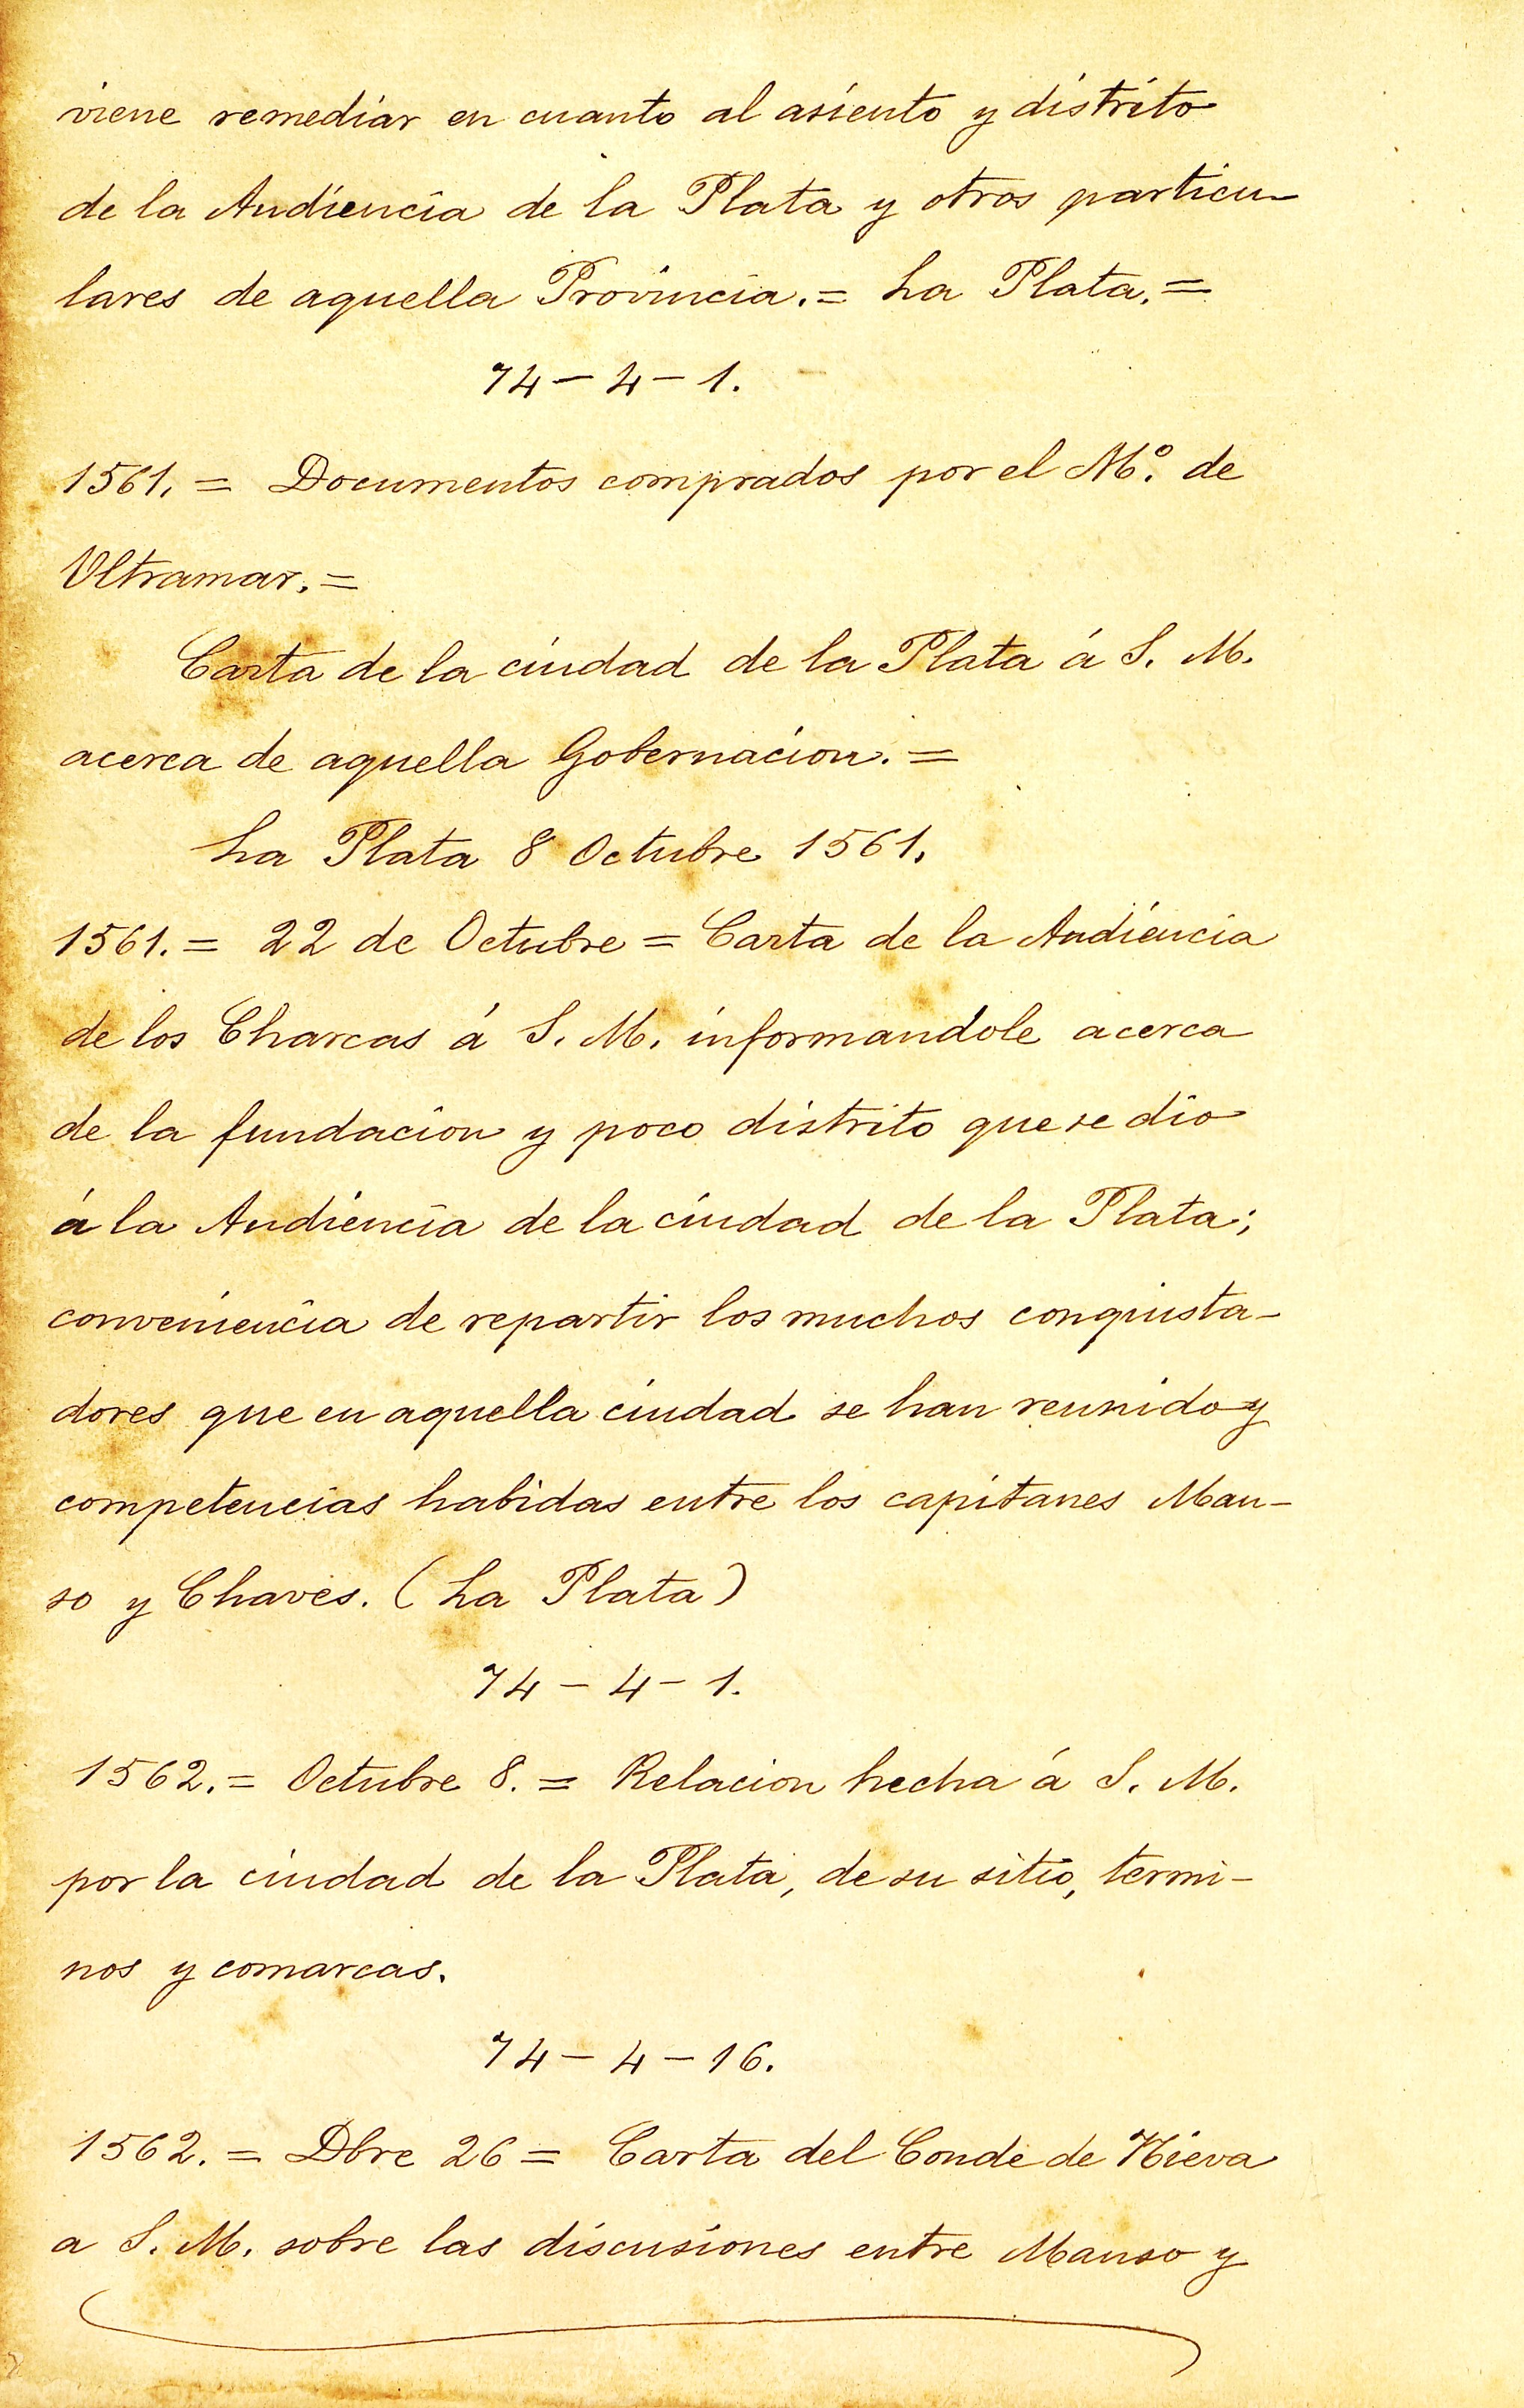 viene remediar en cuanto al asiento y distrito
de la Audiencia de la Plata y otros particu-
lares de aquella Provincia. = La Plata. =
74 - 4 - 1.
1561. = Documentos comprados por el Mº. de
Ultramar. =
Carta de la ciudad de la Plata á S. M.
acerca de aquella Gobernacion. =
La Plata 8 Octubre 1561.
1561. = 22 de Octubre = Carta de la Audiencia
de los Charcas á S. M. informandole acerca
de la fundacion y poco distrito que se dio
á la Audiencia de la ciudad de la Plata;
conveniencia de repartir los muchos conquista-
dores que en aquella ciudad se han reunido y
competencias habidas entre los capitanes Man-
so y Chaves. (La Plata)
74 - 4 - 1.
1562. = Octubre 8. = Relacion hecha á S. M.
por la ciudad de la Plata, de su sitio, termi-
nos y comarcas.
74 - 4 - 16.
1562. = Dbre 26 = Carta del Conde de Nieva
a S. M. sobre las discusiones entre Manso y